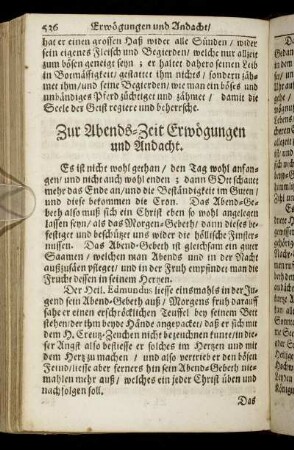 526 Erwögungen und Andacht/
hat er einen grossen Haß wider alle Sünden / wider
sein eigenes Fleisch und Begierden / welche nur allzeit
zum bösen geneiget seyn ; er haltet dahero seinen Leib
in Bottmässigkeit / gestattet ihm nichts / sondern zäh-
met ihn / und seine Begierden / wie man ein böses und
unbändiges Pferd züchtiget und zähmet / damit die
Seele der Geist regiere und beherrsche.
Zur Abends-Zeit Erwögungen
und Andacht.
Es ist nicht wohl gethan / den Tag wohl anfan-
gen / und nicht auch wohl enden ; dann GOtt schauet
mehr das Ende an / und die Beständigkeit im Guten /
und diese bekommen die Cron. Das Abend-Ge-
beth also muß sich ein Christ eben so wohl angelegen
lassen seyn / als das Morgen-Gebeth / dann dieses be-
festiget und beschützet uns wider die höllische Finster-
nussen. Das Abend-Gebeth ist gleichsam ein guter
Saamen / welchen man Abends und in der Nacht
außzusäen pfleget / und in der Fruh empfindet man die
Frucht dessen in seinem Hertzen.
Der Heil. Edmundus ließe einsmahls in der Ju-
gend sein Abend-Gebeth auß / Morgens fruh darauff
sahe er einen erschröcklichen Teuffel bey seinem Bett
stehen / der ihm beyde Hände angepacket / daß er sich mit
dem H. Creutz-Zeichen nicht bezeichnen kunte / in die-
ser Angst also bestiesse er solches im Hertzen und mit
dem Hertz zu machen / und also vertriebe er den bösen
Feind / liesse aber ferners hin sein Abend-Gebeth nie-
mahlen mehr auß / welches ein jeder Christ üben und
nachfolgen soll.
Das